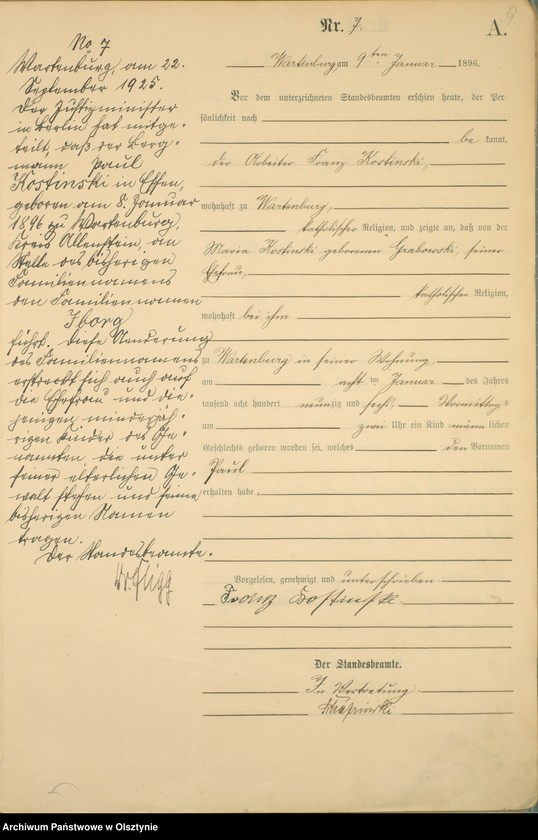 9
Nr. 7.
A.
Wartenburg am 9ten Januar 1896.
Vor dem unterzeichneten Standesbeamten erschien heute, der Per-
sönlichkeit nach
be kannt,
der Arbeiter Franz Kostinski,
wohnhaft zu Wartenburg,
katholischer Religion, und zeigte an, daß von der
Maria Kostinski geborenen Grabowski, seiner
Ehefrau,
katholischer Religion,
wohnhaft bei ihm
zu Wartenburg in seiner Wohnung,
am acht ten Januar des Jahres
tausend acht hundert neunzig und sechs, Vormittags
um zwei Uhr ein Kind männlichen
Geschlechts geboren worden sei, welches den Vornamen
Paul
erhalten habe,
Vorgelesen, genehmigt und unterschrieben
Franz Kostinski
Der Standesbeamte.
In Vertretung
No 7
Wartenburg, am 22.
September 1925.
Der Justizminister
in Berlin hat mitge-
teilt, daß der Berg-
mann Paul
Kostinski in Essen,
geboren am 8. Januar
1896 zu Wartenburg,
Kreis Allenstein, an
Stelle des bisherigen
Familiennamens
den Familiennamen
Iborg
führt. Diese Aenderung
des Familiennamens
erstreckt sich auch auf
die Ehefrau und die-
jenigen minderjäh-
rigen Kinder des Ge-
nannten die unter
seiner elterlichen Ge-
walt stehen und seinen
bisherigen Namen
tragen.
Der Standesbeamte.
Archiwum Państwowe w Olsztynie